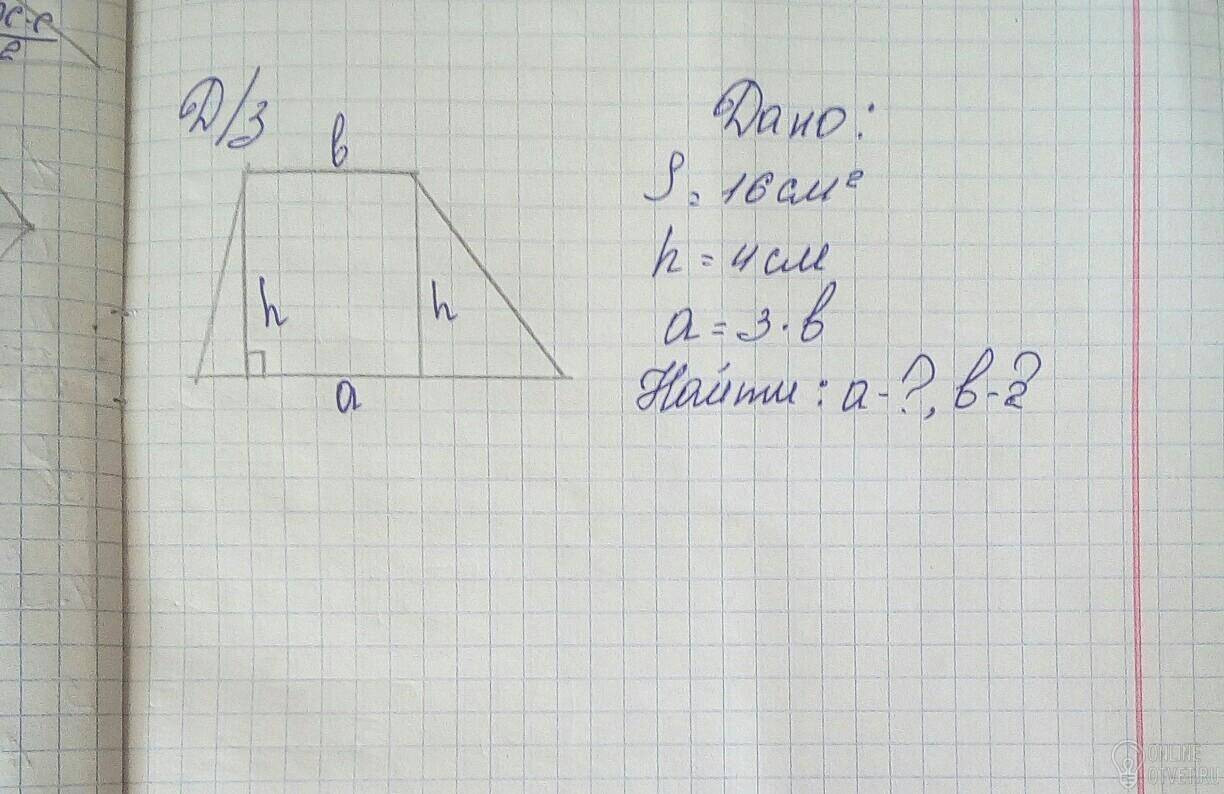 Д/З
в
h
h
a
Дано:
S = 16 см²
h = 4 см
a = 3 · в
Найти: a - ?, в - ?
ONLINE
OTVET.RU